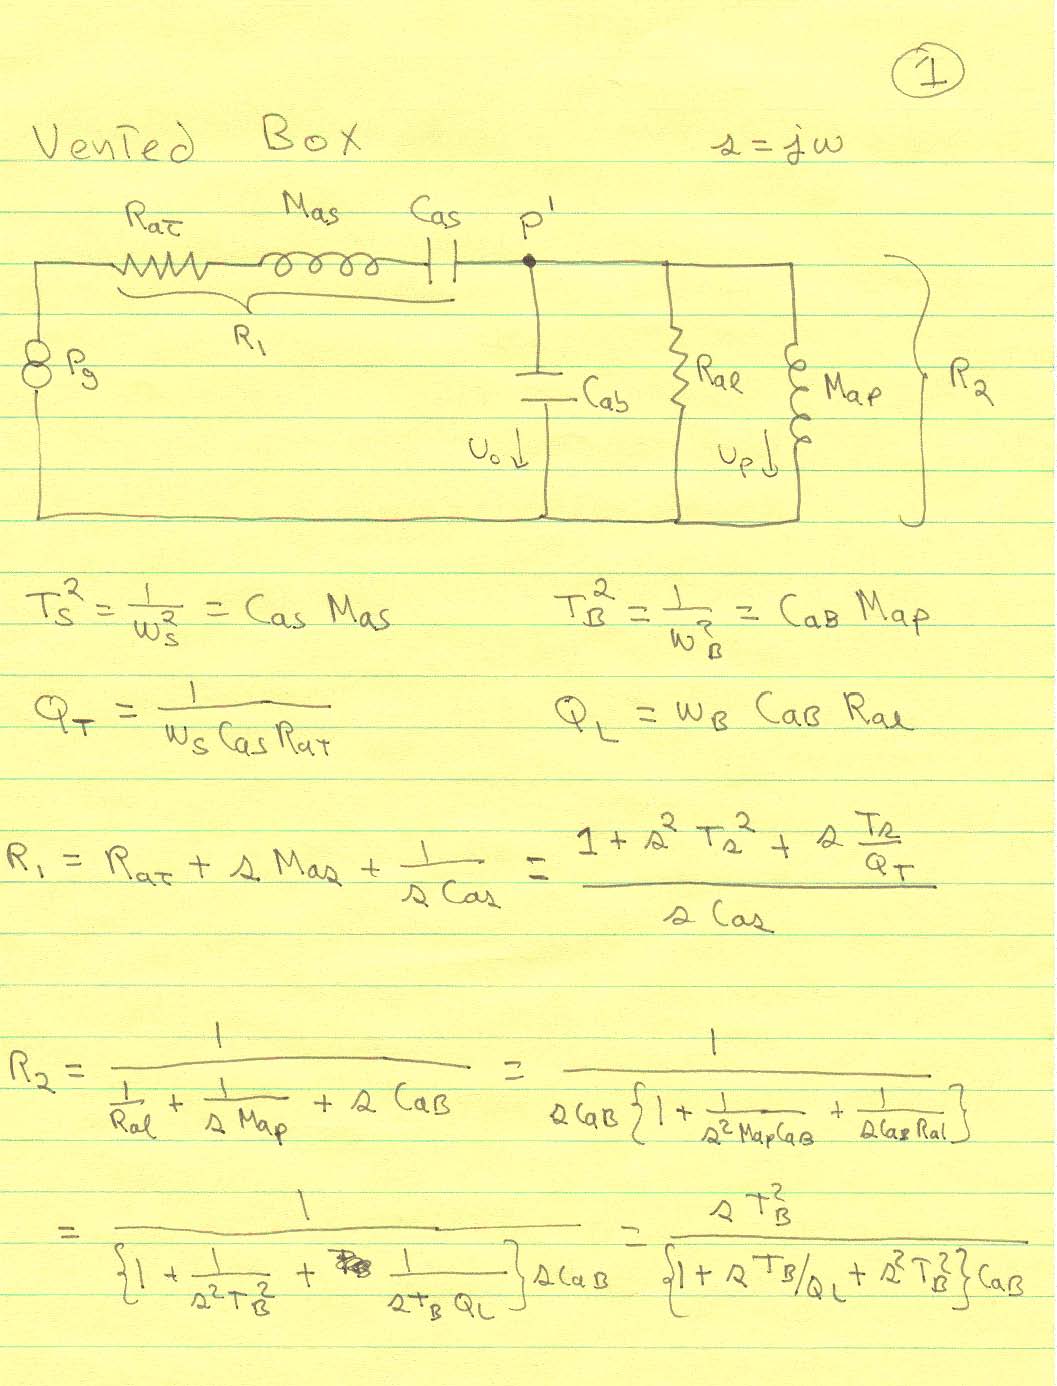 1
Vented Box s = jw
Rat Mas Cas P'
R1
Pg Cab Ral Map R2
Uo ↓ Up ↓
Ts² = 1/ws² = Cas Mas TB² = 1/wB² = CaB Map
QT = 1/(ws Cas RaT) QL = wB CaB Ral
R1 = Rat + s Mas + 1/(s Cas) = (1 + s² Ts² + s Ts/QT)/(s Cas)
R2 = 1/(1/Ral + 1/(s Map) + s CaB) = 1/(s CaB {1 + 1/(s² Map CaB) + 1/(s CaB Ral)})
= 1/({1 + 1/(s² TB²) + 1/(s TB QL)} s CaB) = s TB²/({1 + s TB/QL + s² TB²} CaB)